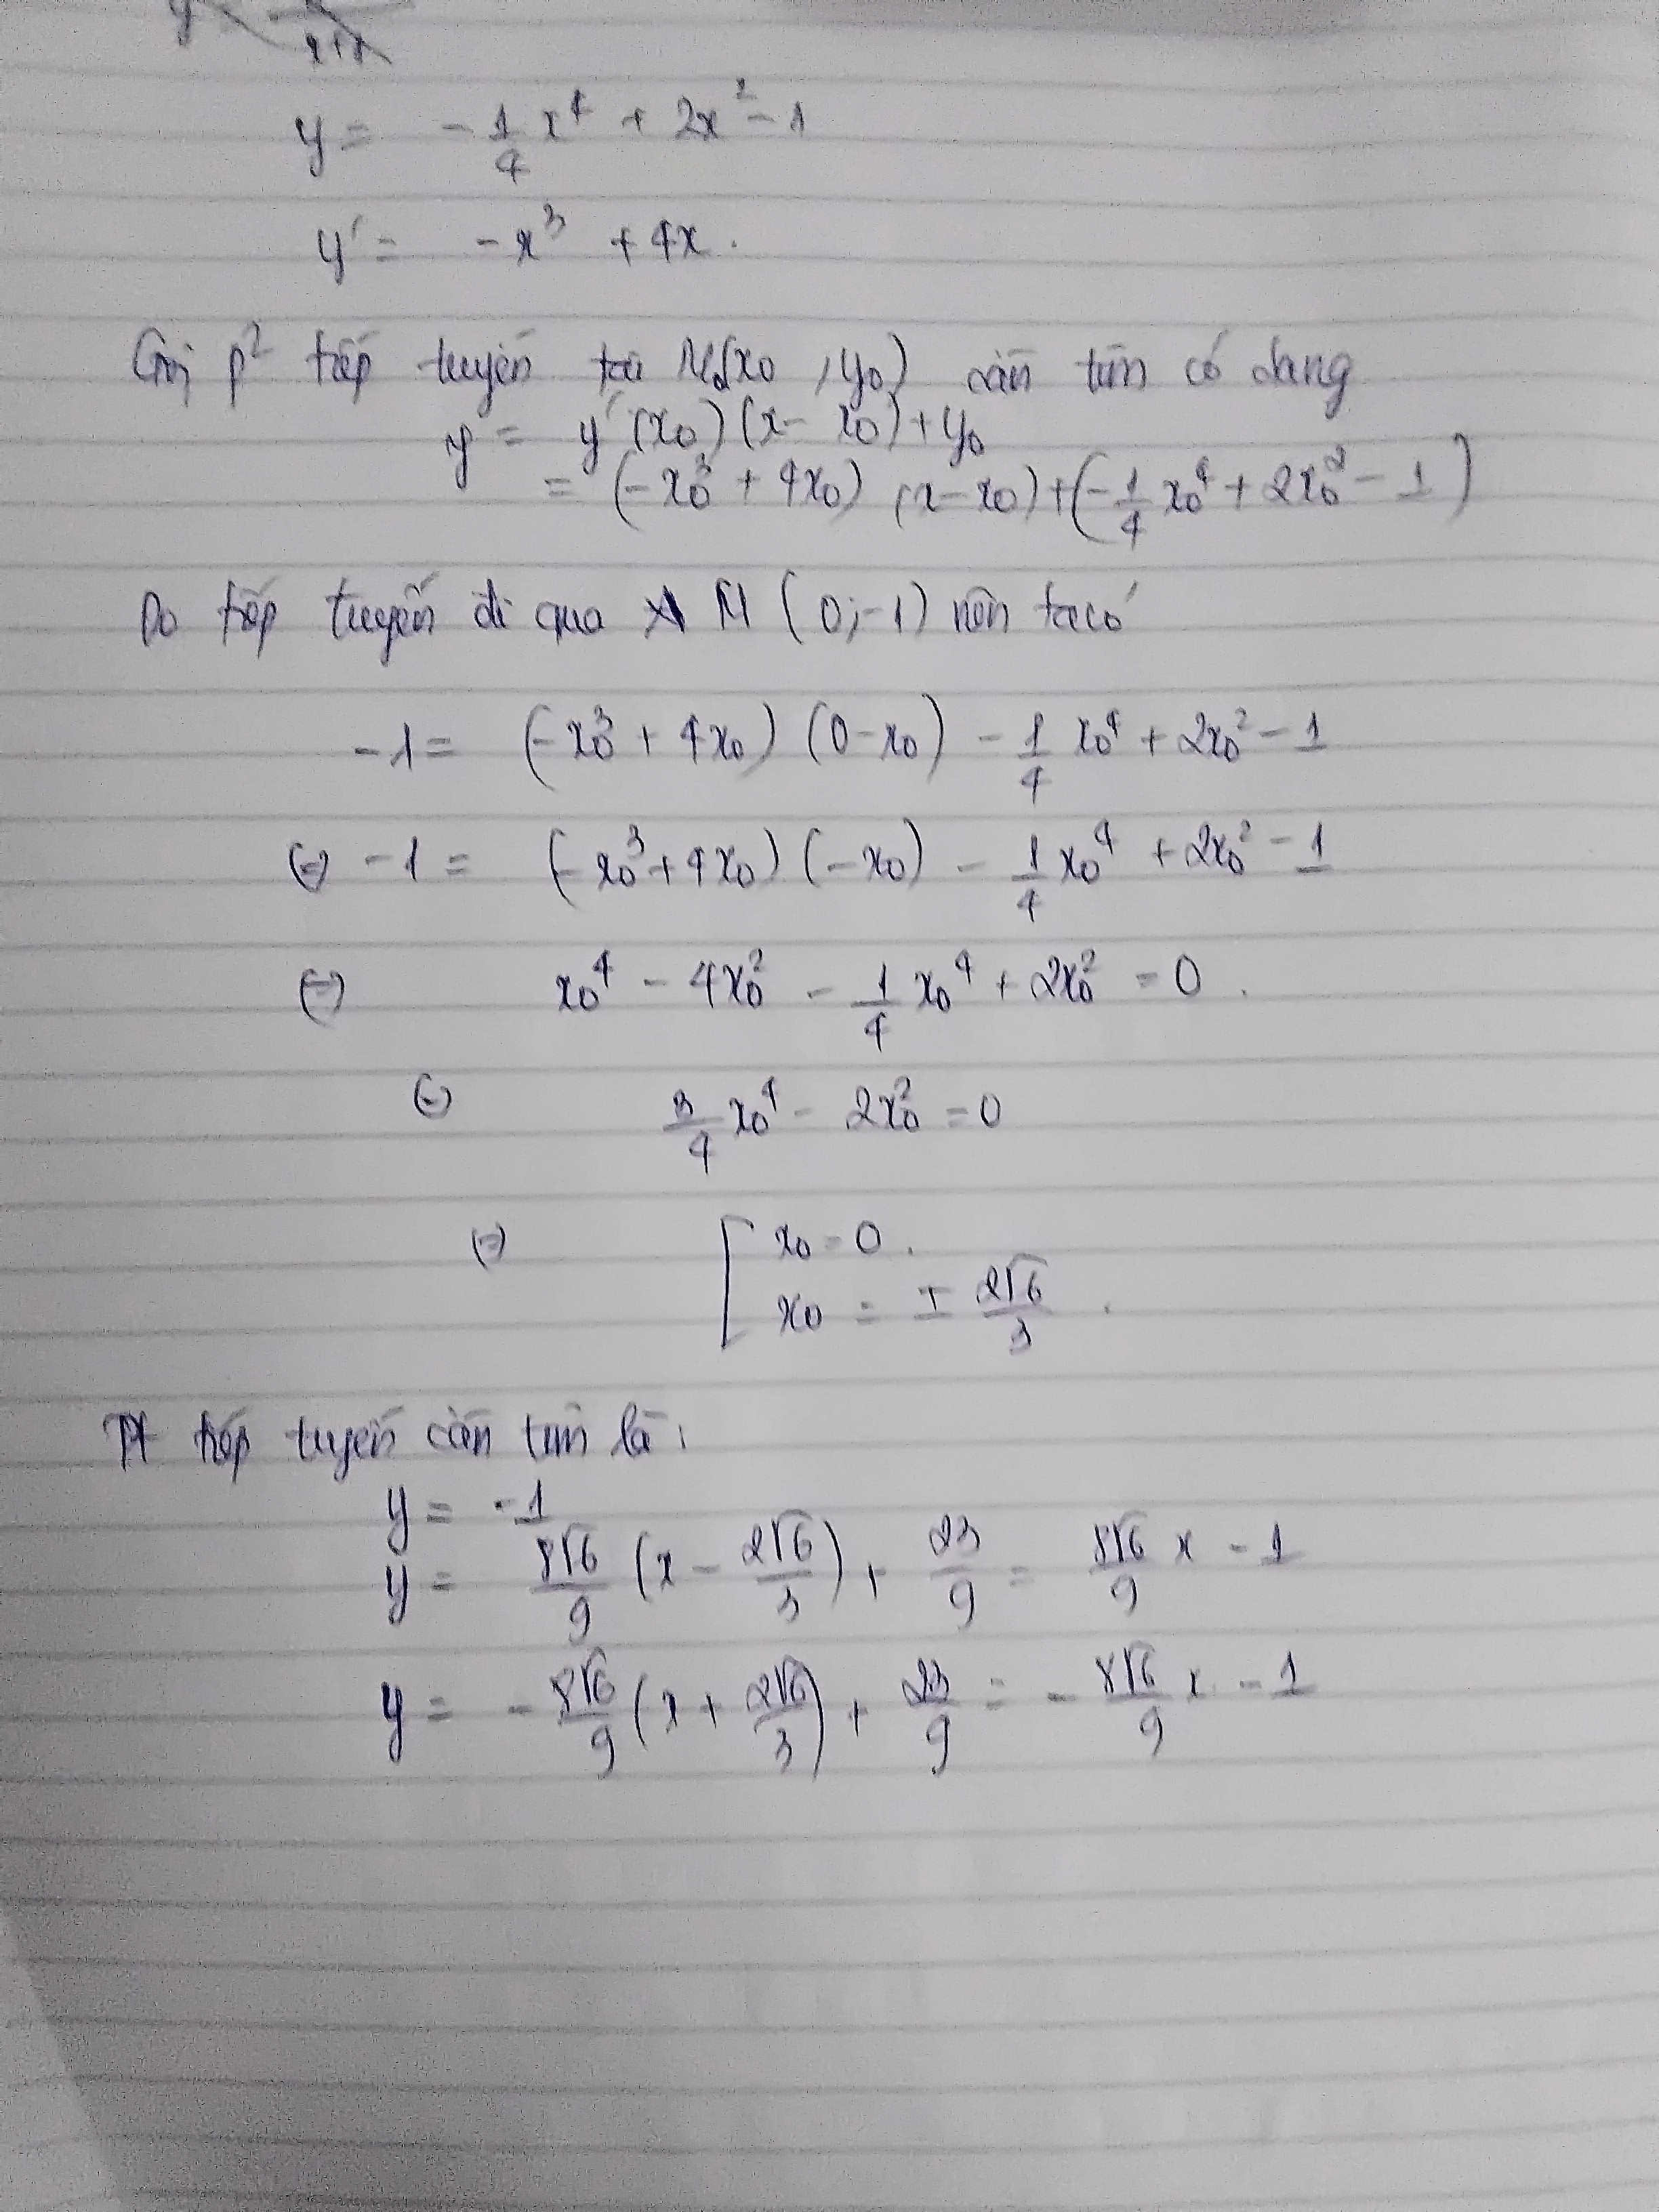 y = - 1/4 x⁴ + 2x² - 1
y' = - x³ + 4x.
Gọi p² tiếp tuyến tại M₀(x₀, y₀) cần tìm có dạng
y = y'(x₀)(x - x₀) + y₀
= (-x₀³ + 4x₀)(x - x₀) + (-1/4 x₀⁴ + 2x₀² - 1)
Do tiếp tuyến đi qua M (0;-1) nên ta có
-1 = (-x₀³ + 4x₀)(0 - x₀) - 1/4 x₀⁴ + 2x₀² - 1
(=) -1 = (-x₀³ + 4x₀)(-x₀) - 1/4 x₀⁴ + 2x₀² - 1
(=) x₀⁴ - 4x₀² - 1/4 x₀⁴ + 2x₀² = 0.
(=) 3/4 x₀⁴ - 2x₀² = 0
(=) [ x₀ = 0.
x₀ = ± 2√6/3.
Pt tiếp tuyến cần tìm là:
y = -1
y = 8√6/9 (x - 2√6/3) + 23/9 = 8√6/9 x - 1
y = - 8√6/9 (x + 2√6/3) + 23/9 = - 8√6/9 x - 1